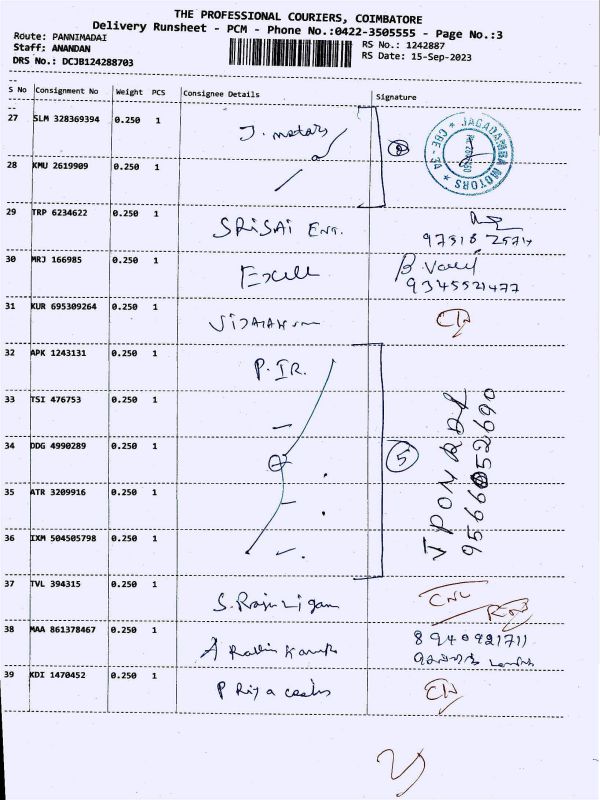 THE PROFESSIONAL COURIERS, COIMBATORE
Delivery Runsheet - PCM - Phone No.:0422-3505555 - Page No.:3
Route: PANNIMADAI
RS No.: 1242887
Staff: ANANDAN
RS Date: 15-Sep-2023
DRS No.: DCJB124288703
S No Consignment No Weight PCS Consignee Details Signature
27 SLM 328369394 0.250 1 J. motors
JAGADAMBA MOTORS ★ CBE-34 ★
28 KMU 2619909 0.250 1
29 TRP 6234622 0.250 1 SRISAI ENG.
30 MRJ 166985 0.250 1 Excell
9345521477
31 KUR 695309264 0.250 1
32 APK 1243131 0.250 1 P. IR.
33 TSI 476753 0.250 1
34 DDG 4990289 0.250 1 5
35 ATR 3209916 0.250 1
36 IXM 504505798 0.250 1
37 TVL 394315 0.250 1
38 MAA 861378467 0.250 1
8940921711
39 KDI 1470452 0.250 1